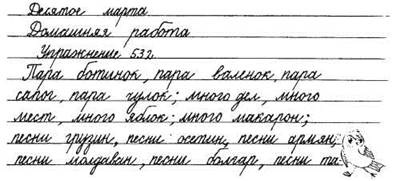 Десятое марта.
Домашняя работа
Упражнение 532.
Пара ботинок, пара валенок, пара
сапог, пара чулок; много дел, много
мест, много яблок; много макарон;
песни грузин, песни осетин, песни армян,
песни молдаван, песни болгар, песни та-